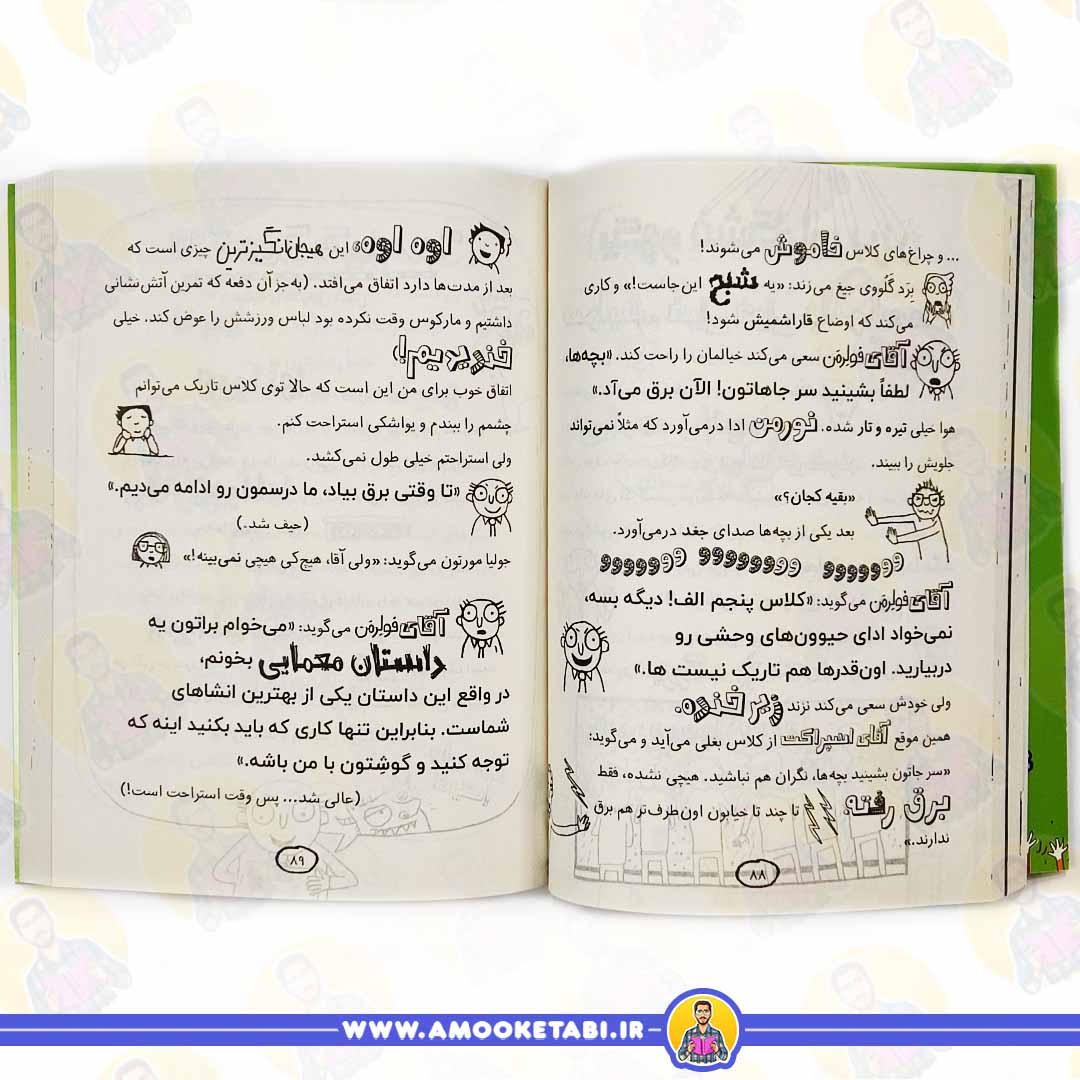 ... و چراغ‌های کلاس خاموش می‌شوند!
بِرَد گَلُووی جیغ می‌زند: «یه شبح این‌جاست!» و کاری
می‌کند که اوضاع قاراشمیش شود!
آقای فولرمَن سعی می‌کند خیالمان را راحت کند. «بچه‌ها،
لطفاً بشینید سر جاهاتون! الآن برق می‌آد.»
هوا خیلی تیره و تار شده. نورمن ادا درمی‌آورد که مثلاً نمی‌تواند
جلویش را ببیند.
«بقیه کجان؟»
بعد یکی از بچه‌ها صدای جغد درمی‌آورد.
وووووووو وووووووو وووووووو
آقای فولرمَن می‌گوید: «کلاس پنجم الف! دیگه بسه،
نمی‌خواد ادای حیوون‌های وحشی رو
دربیارید. اون‌قدرها هم تاریک نیست ها.»
ولی خودش سعی می‌کند نزند زیر خنده.
همین موقع آقای اسپراکت از کلاس بغلی می‌آید و می‌گوید:
«سر جاتون بشینید بچه‌ها، نگران هم نباشید. هیچی نشده، فقط
برق رفته، تا چند تا خیابون اون‌طرف‌تر هم برق
ندارند.»
۸۸
اوه اوه، این هیجان‌انگیزترین چیزی است که
بعد از مدت‌ها دارد اتفاق می‌افتد. (به‌جز آن دفعه که تمرین آتش‌نشانی
داشتیم و مارکوس وقت نکرده بود لباس ورزشش را عوض کند. خیلی
خندیدیم!)
اتفاق خوب برای من این است که حالا توی کلاس تاریک می‌توانم
چشمم را ببندم و یواشکی استراحت کنم.
ولی استراحتم خیلی طول نمی‌کشد.
«تا وقتی برق بیاد، ما درسمون رو ادامه می‌دیم.»
(حیف شد.)
جولیا مورتون می‌گوید: «ولی آقا، هیچ‌کی هیچی نمی‌بینه!»
آقای فولرمَن می‌گوید: «می‌خوام براتون یه
داستان معمایی بخونم،
در واقع این داستان یکی از بهترین انشاهای
شماست. بنابراین تنها کاری که باید بکنید اینه که
توجه کنید و گوشِتون با من باشه.»
(عالی شد... پس وقت استراحت است!)
۸۹
WWW.AMOOKETABI.IR